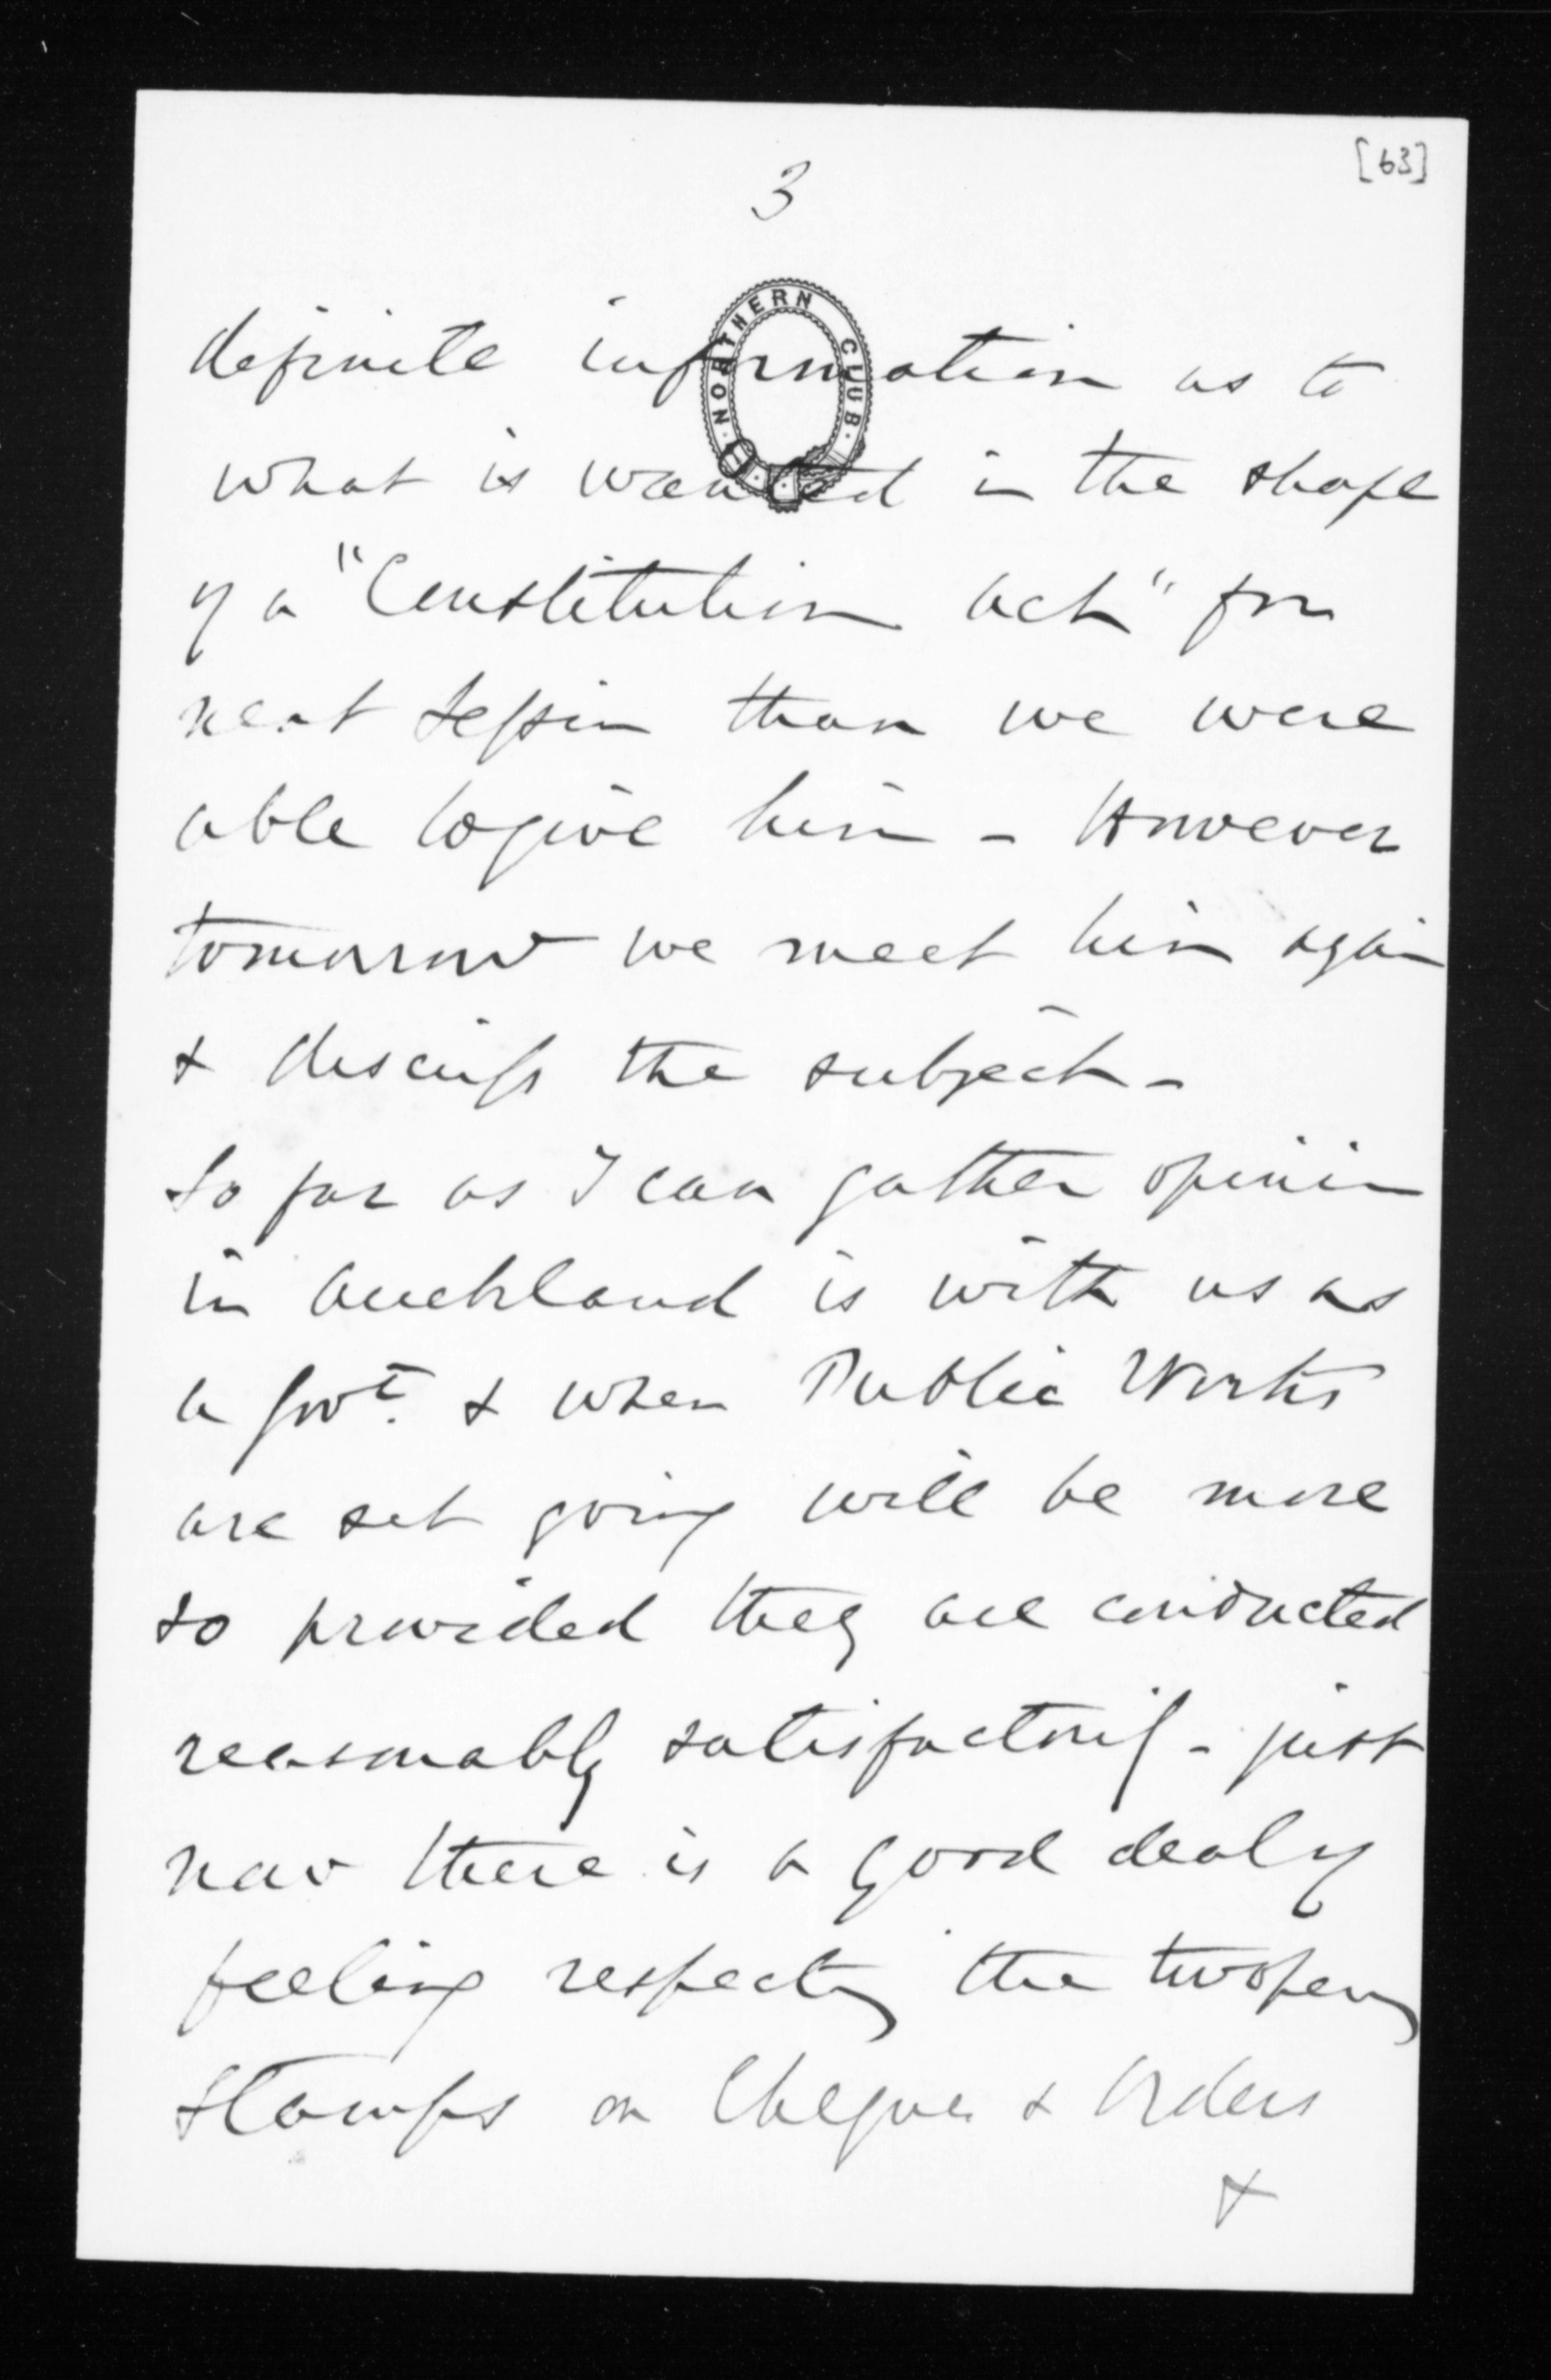 [63]
3
NORTHERN CLUB
definite information as to
what is wanted in the shape
of a "Constitution Act" for
next Session than we were
able to give him - However
tomorrow we meet him again
& discuss the subject -
So far as I can gather opinion
in Auckland is with us as
a Govt. & when Public Works
are set going will be more
so provided they are conducted
reasonably satisfactorily - just
now there is a good deal of
feeling respecting the twopenny
Stamps on Cheques & Orders
&